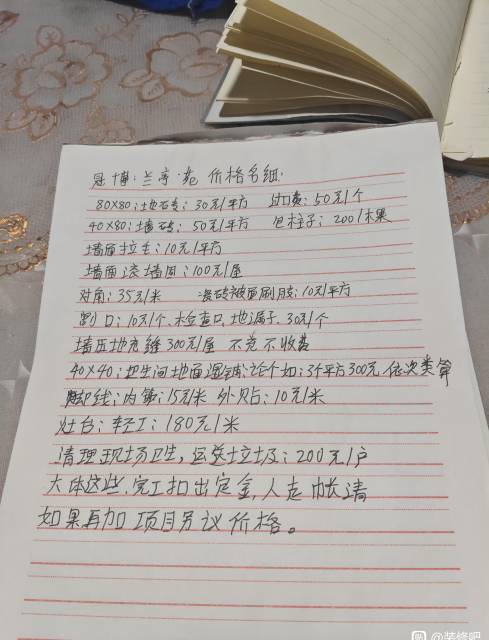 恩博·兰亭·苑 价格名细:
80X80:地砖:30元/平方 过口费:50元/个
40X80:墙砖:50元/平方 包柱子:200/根
墙面拉毛:10元/平方
墙面 墙固:100元/屋
对角:35元/米 瓷砖被面刷胶:10元/平方
割口:10元/个、检查口、地漏子、30元/个
墙压地充缝300元/屋 不充不收费
40X40:卫生间地面湿铺:论个如:3个平方300元 依次类算
脚线:内镶:15元/米 外贴:10元/米
灶台:轻工:180元/米
清理现场卫生,运送垃圾:200元/户
大体这些,完工扣出定金,人走帐清
如果再加项目另议价格。
@装修吧